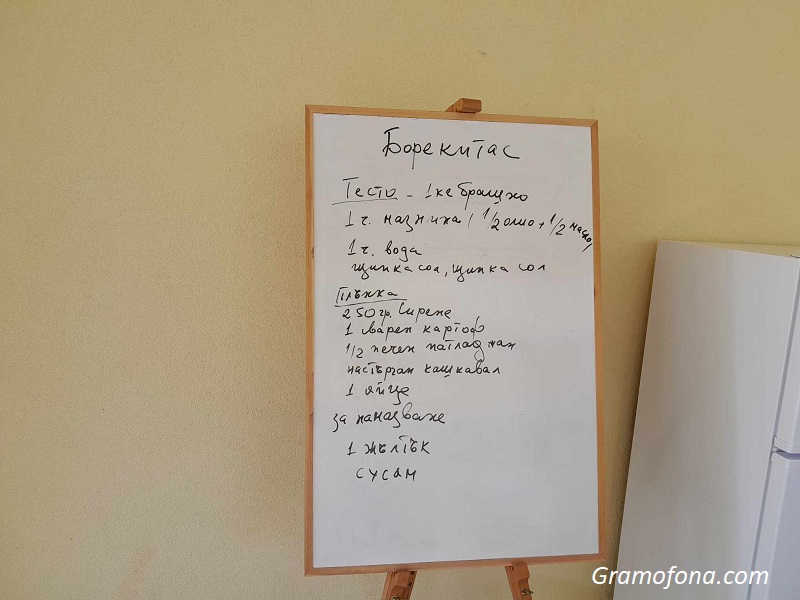 Борекитас
Тесто - 1 кг брашно
1 ч. мазнина ( 1/2 олио + 1/2 масло)
1 ч. вода
щипка сол, щипка сол
Плънка
250 гр. Сирене
1 варен картоф
1/2 печен патладжан
настърган кашкавал
1 яйце
за намазване
1 жълтък
сусам
Gramofona.com